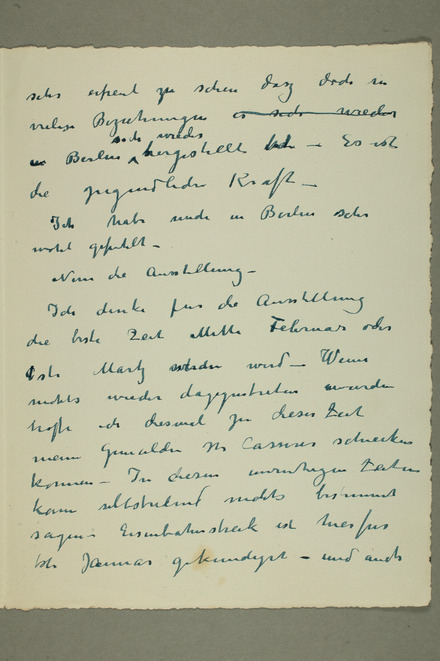 sehr erfreut zu sehen dasz doch in
vielen Beziehungen es sich wieder
sich wieder
in Berlin hergestellt hat — Es ist
die jugendliche Kraft —
Ich habe mich in Berlin sehr
wohl gefühlt —
Nun die Ausstellung —
Ich denke für die Ausstellung
die beste Zeit Mitte Februar oder
1ste Martz wird — Wenn
nichts wieder dagegentreten wurden
hoffe ich diesmal zu dieser Zeit
meine Gemälden schicken
konnen — In diesen unruhigen Zeiten
kann selbstredend nichts bestimmt
sagen Eisenbahnstreik ist hier fur
1ste Januar gekundigt — und auch